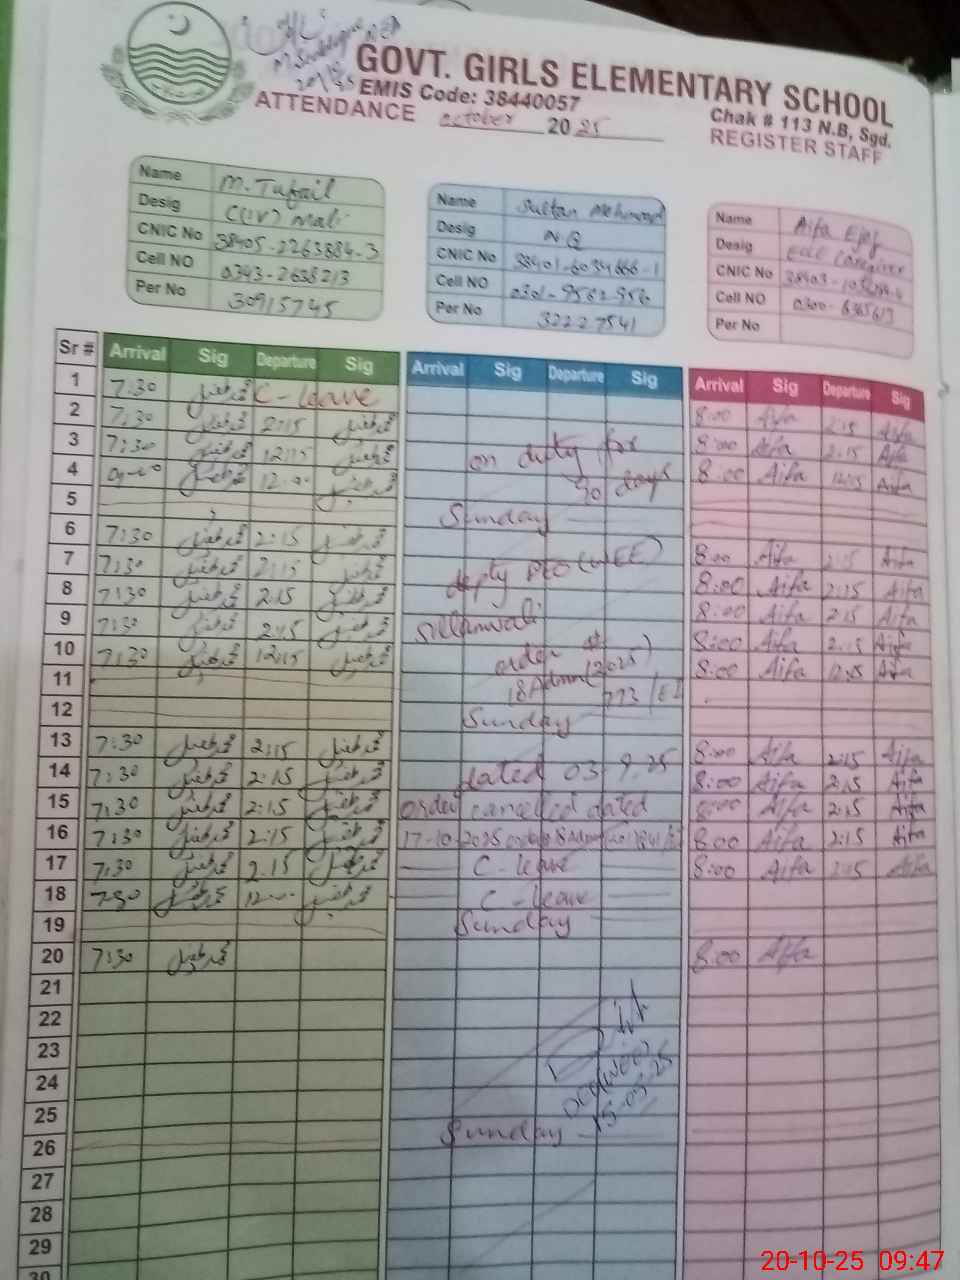 GOVT. GIRLS ELEMENTARY SCHOOL
EMIS Code: 38440057
Chak # 113 N.B, Sgd.
ATTENDANCE October 20 25
REGISTER STAFF
Name M. Tufail
Desig C(IV) Mali
CNIC No 38405-2263884-3
Cell NO 0343-2638213
Per No 30915745
Name Sultan Mehmood
Desig N Q
CNIC No 38401-6034666-1
Cell NO 0301-9562956
Per No 32227541
Name Aifa Ejaz
Desig ECE Caregiver
CNIC No
Cell NO
Per No
Sr # Arrival Sig Departure Sig Arrival Sig Departure Sig Arrival Sig Departure Sig
1 7:30 محمد طفیل C-leave
2 7:30 محمد طفیل 2:15 محمد طفیل 8:00 Aifa 2:15 Aifa
3 7:30 محمد طفیل 12:15 محمد طفیل on duty for 8:00 Aifa 2:15 Aifa
4 محمد طفیل 12:00 محمد طفیل 90 days 8:00 Aifa 12:15 Aifa
5 Sunday
6 7:30 محمد طفیل 2:15 محمد طفیل 8:00 Aifa 2:15 Aifa
7 7:30 محمد طفیل 2:15 محمد طفیل (WEE) 8:00 Aifa 2:15 Aifa
8 7:30 محمد طفیل 2:15 محمد طفیل Sillanwali 8:00 Aifa 2:15 Aifa
9 7:30 محمد طفیل 2:15 محمد طفیل order # 8:00 Aifa 2:15 Aifa
10 7:30 محمد طفیل 12:15 محمد طفیل 8:00 Aifa 12:15 Aifa
11
12 Sunday
13 7:30 محمد طفیل 2:15 محمد طفیل 8:00 Aifa 2:15 Aifa
14 7:30 محمد طفیل 2:15 محمد طفیل dated 03-9-25 8:00 Aifa 2:15 Aifa
15 7:30 محمد طفیل 2:15 محمد طفیل order cancelled dated 8:00 Aifa 2:15 Aifa
16 7:30 محمد طفیل 2:15 محمد طفیل 17-10-2025 8:00 Aifa 2:15 Aifa
17 7:30 محمد طفیل 2:15 محمد طفیل C-leave 8:00 Aifa 2:15 Aifa
18 7:30 محمد طفیل 12:00 محمد طفیل C-leave
19 Sunday
20 7:30 محمد طفیل 8:00 Aifa
21
22
23
24
25
26 Sunday
27
28
29
30
20-10-25 09:47